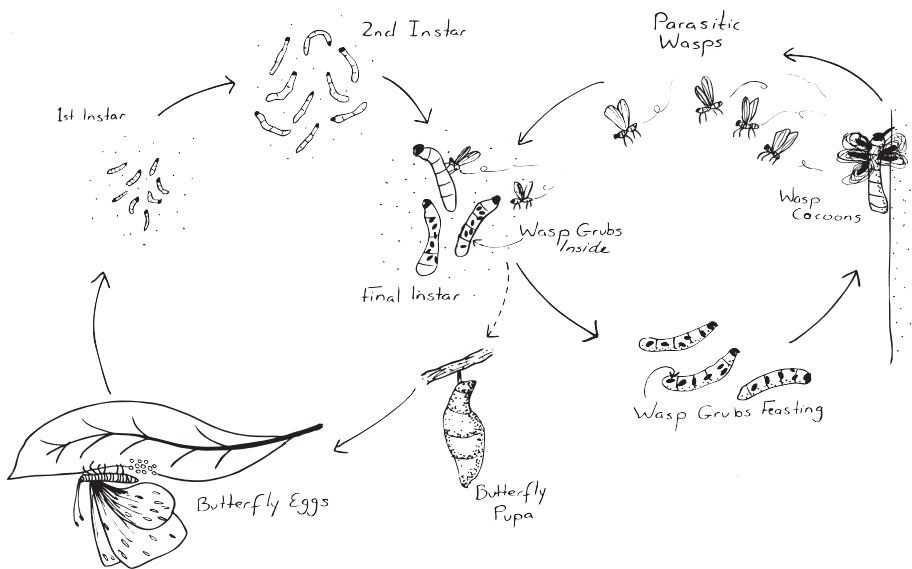 2nd Instar
Parasitic
Wasps
1st Instar
Wasp
Cocoons
Wasp Grubs
Inside
Final Instar
Wasp Grubs Feasting
Butterfly Eggs
Butterfly
Pupa